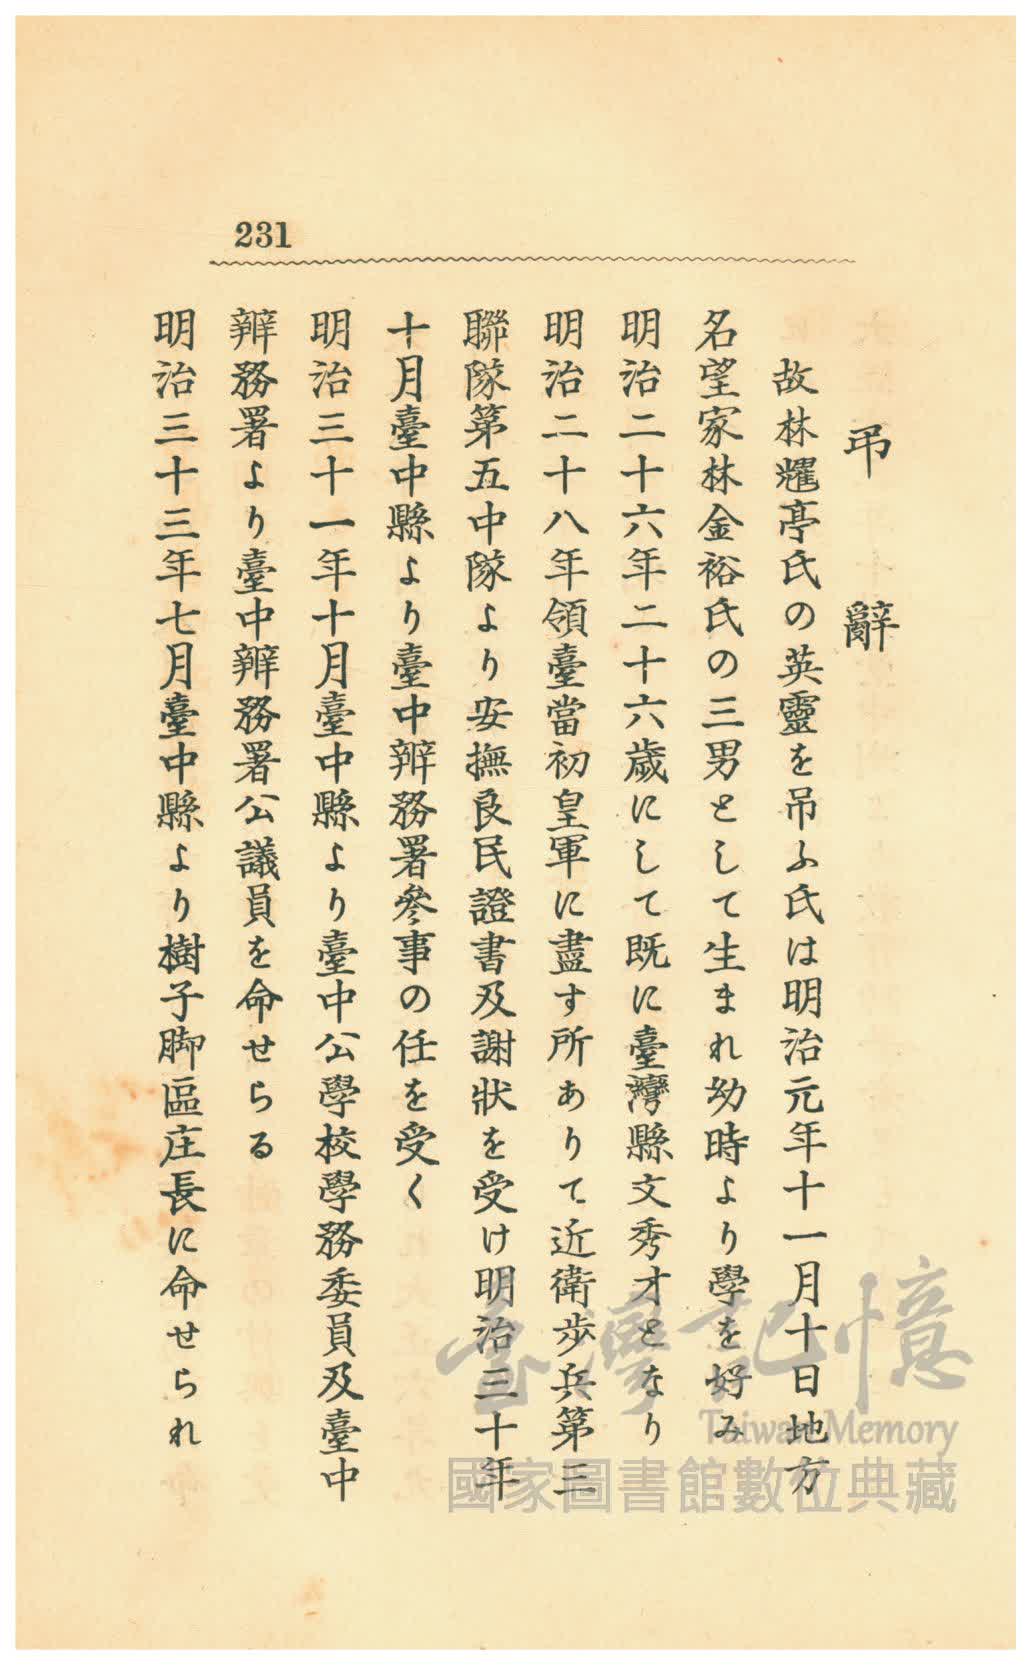 231
吊辭
故林耀亭氏の英靈を吊ふ氏は明治元年十一月十日地方
名望家林金裕氏の三男として生まれ幼時より學を好み
明治二十六年二十六歲にして既に臺灣縣文秀才となり
明治二十八年領臺當初皇軍に盡す所ありて近衛步兵第三
聯隊第五中隊より安撫良民證書及謝狀を受け明治三十年
十月臺中縣より臺中辨務署參事の任を受く
明治三十一年十月臺中縣より臺中公學校學務委員及臺中
辨務署より臺中辨務署公議員を命せらる
明治三十三年七月臺中縣より樹子脚區庄長に命せられ
臺灣記憶
Taiwan Memory
國家圖書館數位典藏